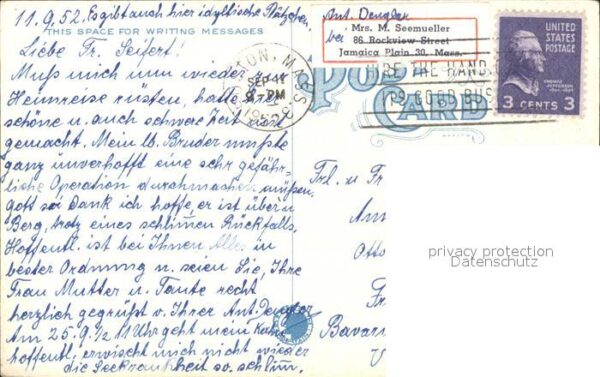 11.9.52. Es gibt auch hier idyllische Plätzchen.
THIS SPACE FOR WRITING MESSAGES
Liebe Fr. Seifert!
Muß mich nun wieder zur
Heimreise rüsten, hatte hier
schöne u. auch schwere Zeit
gemacht. Mein lb. Bruder mußte
ganz unverhofft eine sehr gefähr-
liche Operation durchmachen müßen.
gott sei Dank ich hoffe, er ist übern
Berg, trotz eines schlimen Rückfalls.
Hoffentl. ist bei Ihnen Alles in
bester Ordnung u. seien Sie, Ihre
Frau Mutter u. Tante recht
herzlich gegrüßt v. Ihrer Ant. Dengler
Am 25.9. ½ 11 Uhr geht mein
hoffentl. erwischt mich nicht wieder
die Seekrankheit so schlim.
Ant. Dengler
bei
Mrs. M. Seemueller
86 Rockview Street
Jamaica Plain 30, Mass.
TON, MASS
SEP 11
8-PM
1952
HIRE THE HAND
IT'S GOOD BUS
POST
CARD
UNITED
STATES
POSTAGE
THOMAS
JEFFERSON
3 CENTS 3
Frl. u Fr
Ott
Bavar
privacy protection
Datenschutz